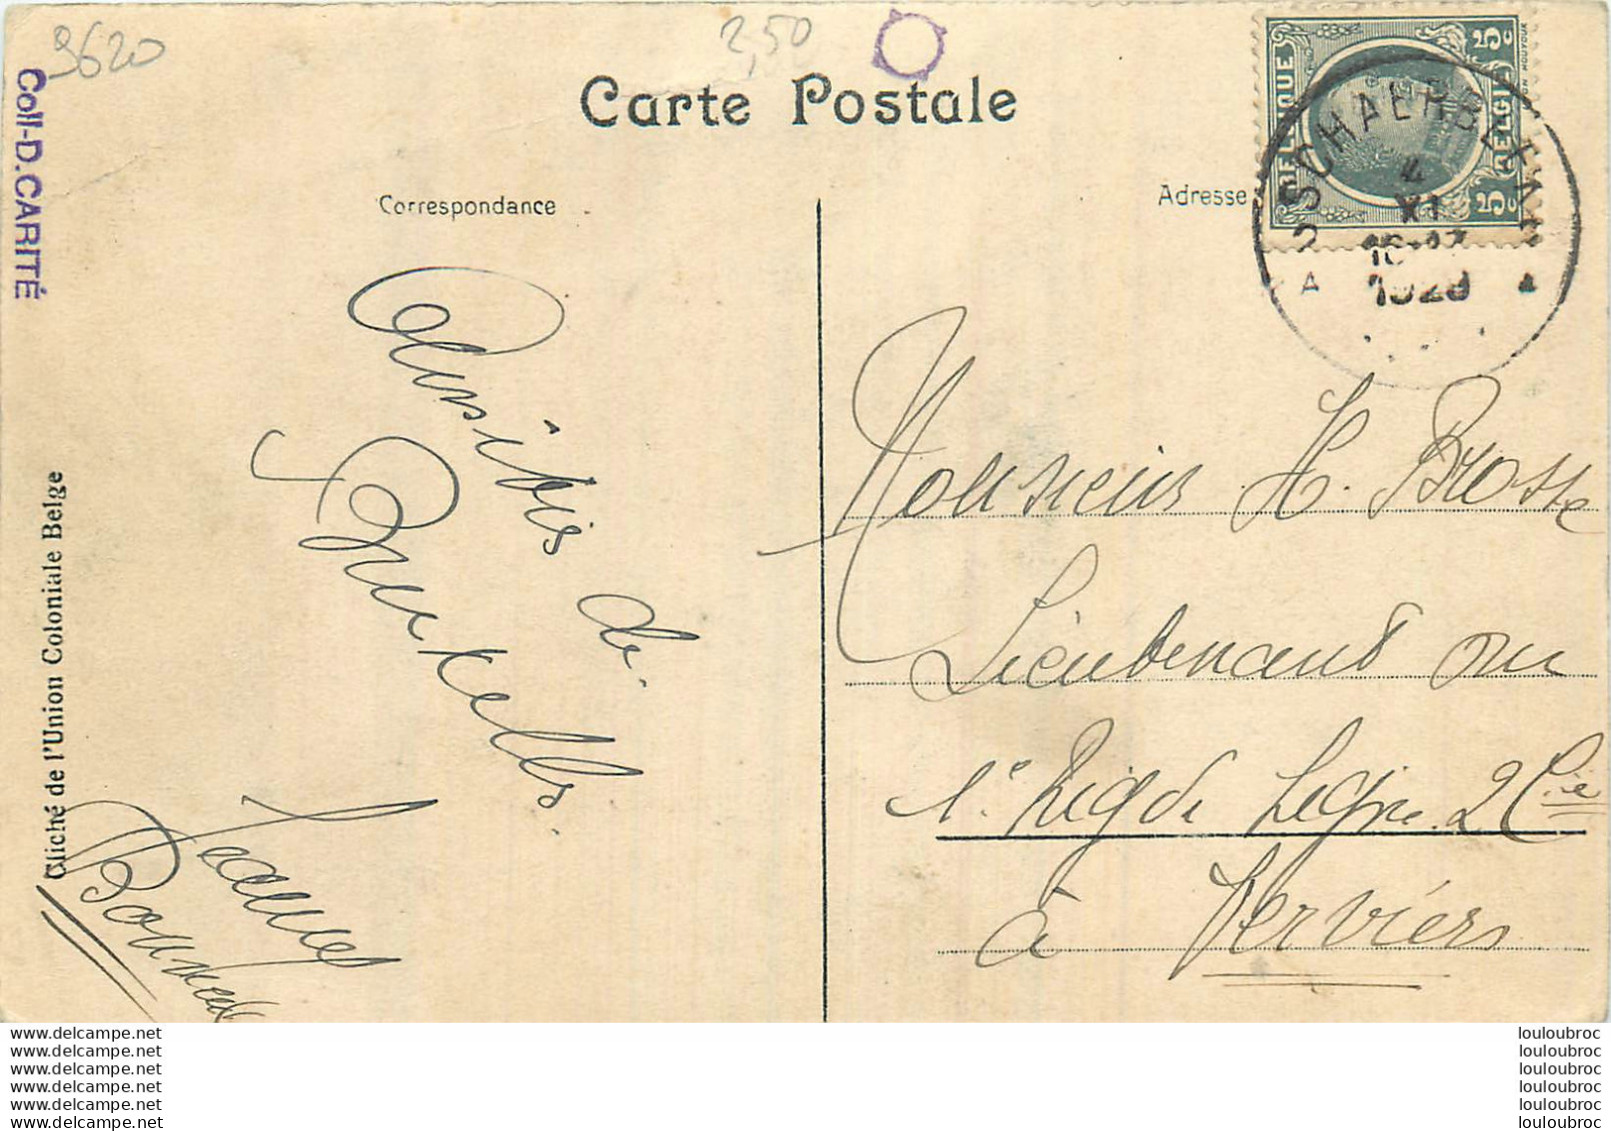 9620
2,50
Coll-D.CARITÉ
Carte Postale
Correspondance
Adresse
BELGIQUE
BELGIË
5c
5c
SCHAERBEEK
4
XI
A
Amitiés de
Bruxelles.
Cliché de l'Union Coloniale Belge
Monsieur H. Brosse
Lieutenant au
1er Rég de Ligne 2 Cie
à Verviers
www.delcampe.net
www.delcampe.net
www.delcampe.net
www.delcampe.net
www.delcampe.net
www.delcampe.net
louloubroc
louloubroc
louloubroc
louloubroc
louloubroc
louloubroc